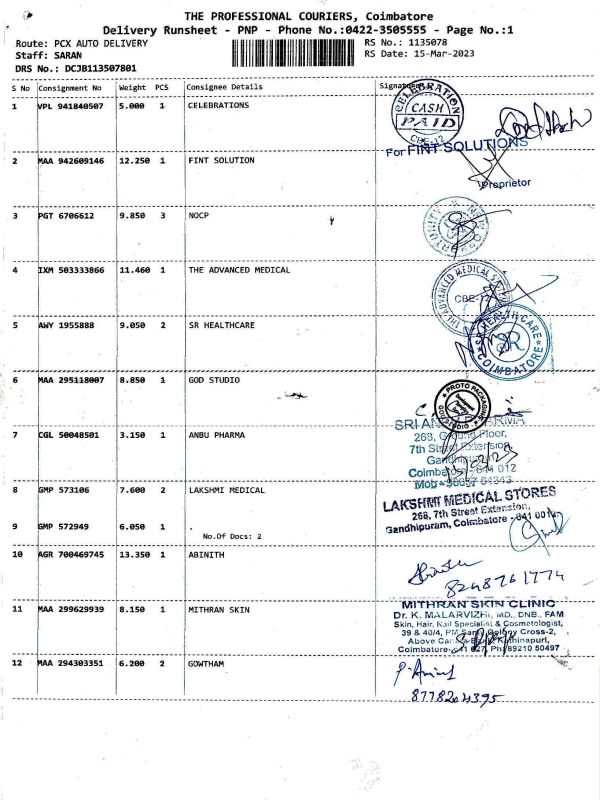 THE PROFESSIONAL COURIERS, Coimbatore
Delivery Runsheet - PNP - Phone No.:0422-3505555 - Page No.:1
Route: PCX AUTO DELIVERY
RS No.: 1135078
Staff: SARAN
RS Date: 15-Mar-2023
DRS No.: DCJB113507801
S No Consignment No Weight PCS Consignee Details Signature
1 VPL 941840507 5.000 1 CELEBRATIONS
CELEBRATION
CASH
PAID
CBE-12
2 MAA 942609146 12.250 1 FINT SOLUTION
For FINT SOLUTIONS
Proprietor
3 PGT 6706612 9.850 3 NOCP
4 IXM 503333866 11.460 1 THE ADVANCED MEDICAL
THE ADVANCED MEDICAL
CBE-12
5 AWY 1955888 9.050 2 SR HEALTHCARE
SR HEALTH CARE
SR
COIMBATORE
6 MAA 295118007 8.850 1 GOD STUDIO
PROTO PACKAGING
7 CGL 50048501 3.150 1 ANBU PHARMA
SRI
268, Ground Floor,
7th Street Extension,
Gandhipuram
Coimbatore - 641 012
8 GMP 573106 7.600 2 LAKSHMI MEDICAL
LAKSHMI MEDICAL STORES
268, 7th Street Extension,
Gandhipuram, Coimbatore - 641 012
9 GMP 572949 6.050 1
No.Of Docs: 2
10 AGR 700469745 13.350 1 ABINITH
8248761774
11 MAA 299629939 8.150 1 MITHRAN SKIN
MITHRAN SKIN CLINIC
Dr. K. MALARVIZHI, MD., DNB., FAM
Skin, Hair, Nail Specialist & Cosmetologist,
39 & 40/4, PM Samy Colony Cross-2,
Coimbatore-641 027, Ph: 89210 50497
12 MAA 294303351 6.200 2 GOWTHAM
8778204395